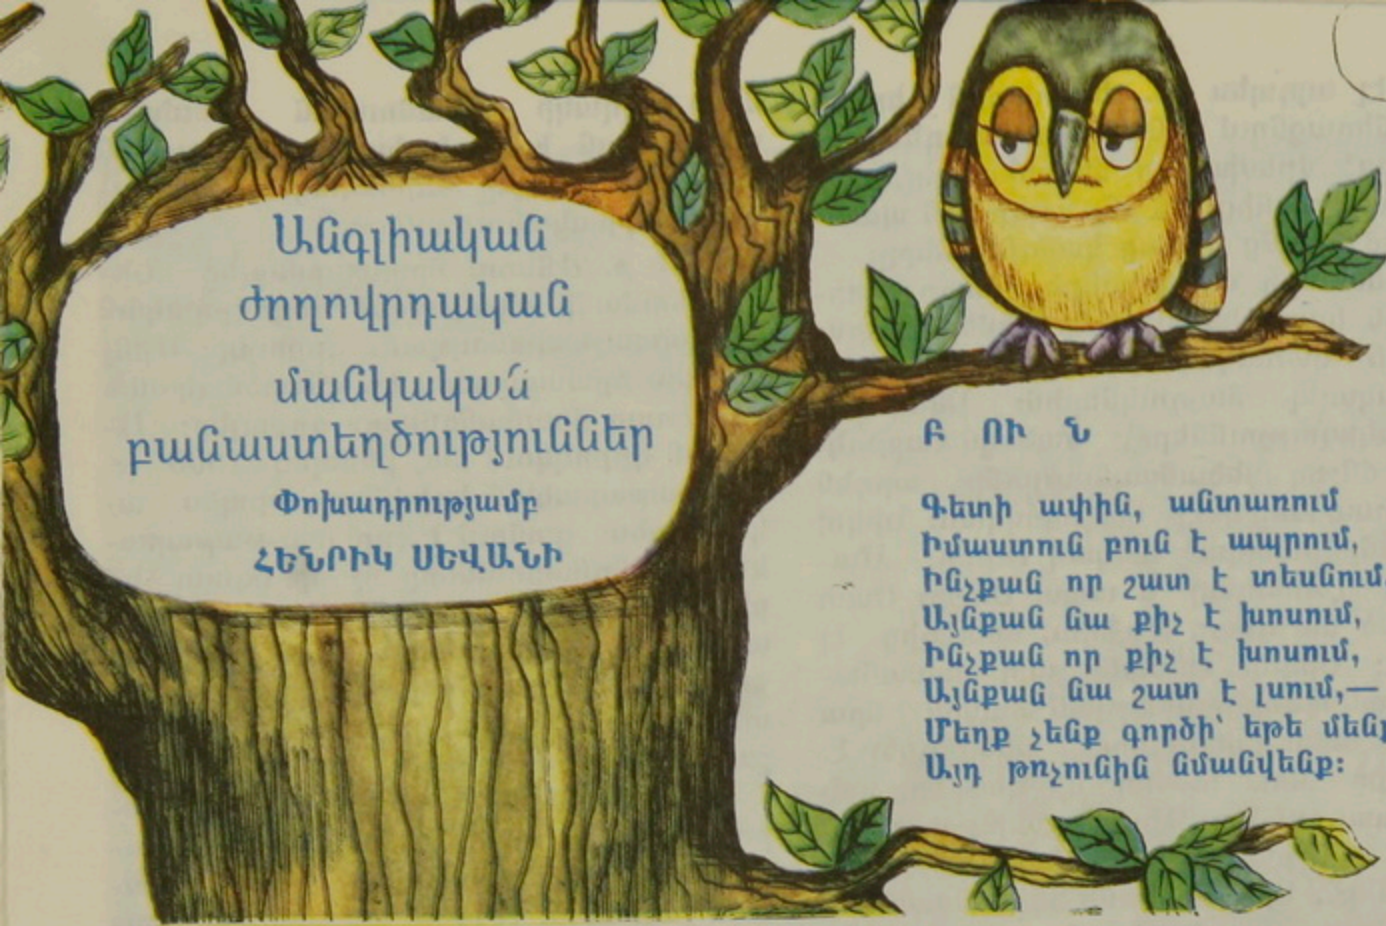 Անգլիական
ժողովրդական
մանկական
բանաստեղծություններ
Փոխադրությամբ
ՀԵՆՐԻԿ ՍԵՎԱՆԻ
Բ ՈՒ Ն
Գետի ափին, անտառում
Իմաստուն բուն է ապրում,
Ինչքան որ շատ է տեսնում
Այնքան նա քիչ է խոսում,
Ինչքան որ քիչ է խոսում,
Այնքան նա շատ է լսում,—
Մեղք չենք գործի՝ եթե մենք
Այդ թռչունին նմանվենք։